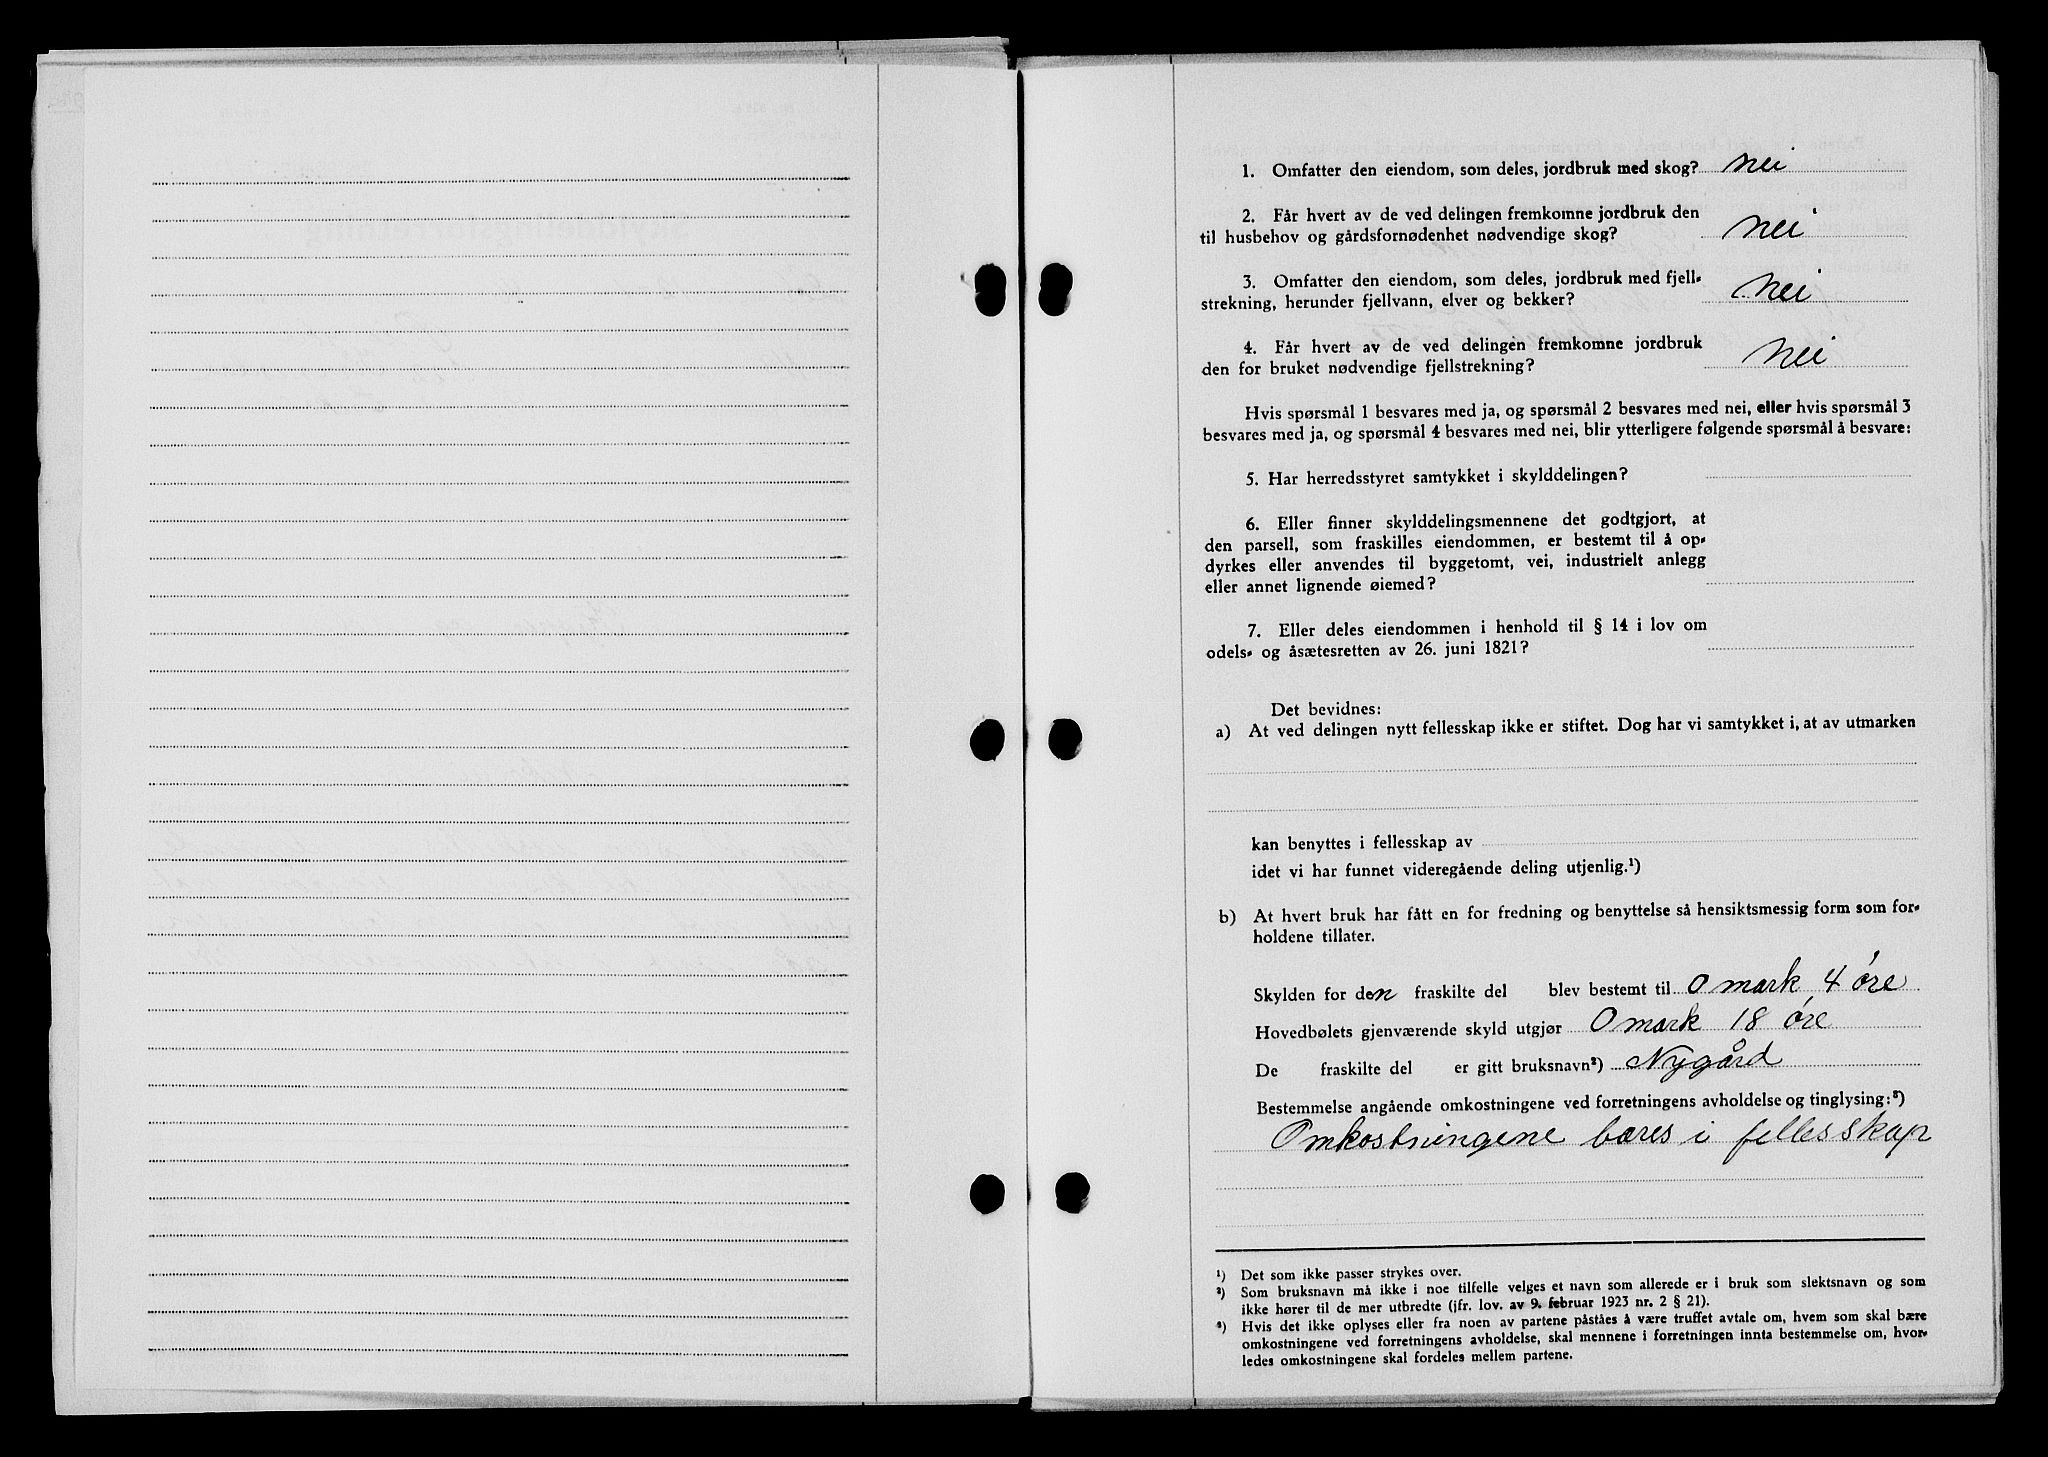 1. Omfatter den eiendom, som deles, jordbruk med skog? nei
2. Får hvert av de ved delingen fremkomne jordbruk den
til husbehov og gårdsfornødenhet nødvendige skog? nei
3. Omfatter den eiendom, som deles, jordbruk med fjell-
strekning, herunder fjellvann, elver og bekker? nei
4. Får hvert av de ved delingen fremkomne jordbruk
den for bruket nødvendige fjellstrekning? nei
Hvis spørsmål 1 besvares med ja, og spørsmål 2 besvares med nei, eller hvis spørsmål 3
besvares med ja, og spørsmål 4 besvares med nei, blir ytterligere følgende spørsmål å besvare:
5. Har herredsstyret samtykket i skylddelingen?
6. Eller finner skylddelingsmennene det godtgjort, at
den parsell, som fraskilles eiendommen, er bestemt til å op-
dyrkes eller anvendes til byggetomt, vei, industrielt anlegg
eller annet lignende øiemed?
7. Eller deles eiendommen i henhold til § 14 i lov om
odels- og åsætesretten av 26. juni 1821?
Det bevidnes:
a) At ved delingen nytt fellesskap ikke er stiftet. Dog har vi samtykket i, at av utmarken
kan benyttes i fellesskap av
idet vi har funnet videregående deling utjenlig.¹)
b) At hvert bruk har fått en for fredning og benyttelse så hensiktsmessig form som for-
holdene tillater.
Skylden for den fraskilte del blev bestemt til 0 mark 4 øre
Hovedbølets gjenværende skyld utgjør 0 mark 18 øre
De fraskilte del er gitt bruksnavn²) Nygård
Bestemmelse angående omkostningene ved forretningens avholdelse og tinglysing:³)
Omkostningene bæres i fellesskap
¹) Det som ikke passer strykes over.
²) Som bruksnavn må ikke i noe tilfelle velges et navn som allerede er i bruk som slektsnavn og som
ikke hører til de mer utbredte (jfr. lov. av 9. februar 1923 nr. 2 § 21).
³) Hvis det ikke oplyses eller fra noen av partene påståes å være truffet avtale om, hvem som skal bære
omkostningene ved forretningens avholdelse, skal mennene i forretningen innta bestemmelse om, hvor-
ledes omkostningene skal fordeles mellem partene.